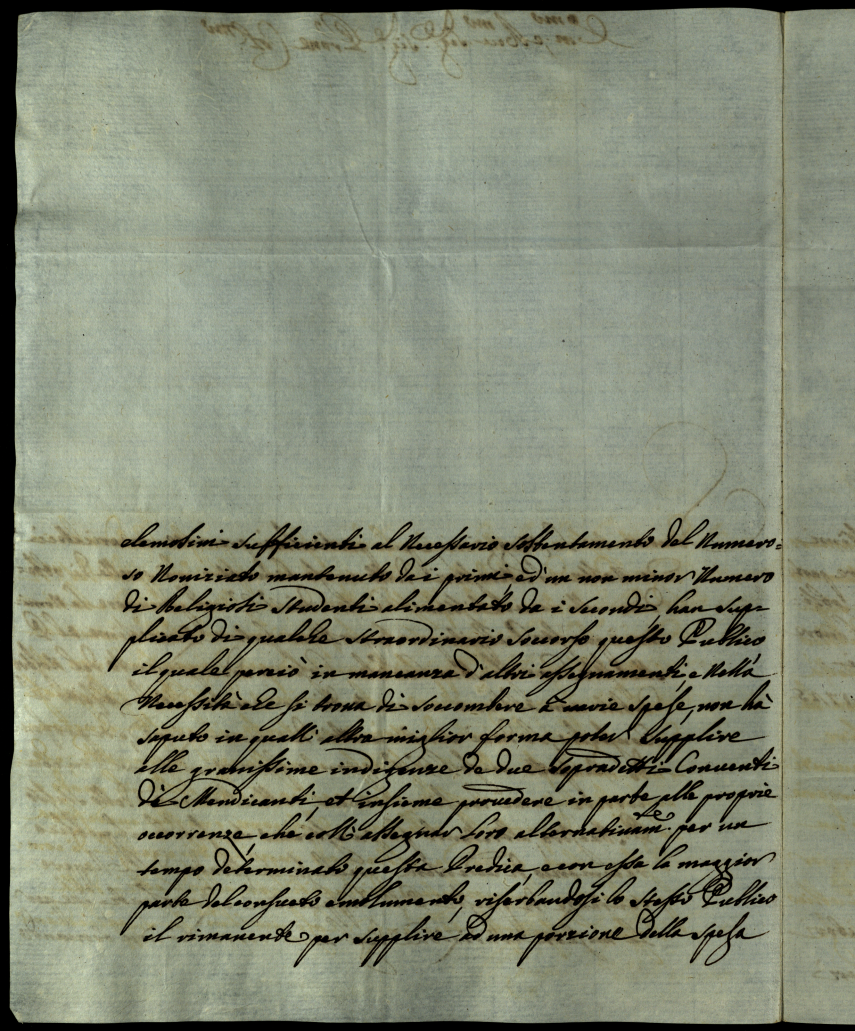 elemosini sufficienti al Necessario sostentamento del Numero=
so Noviziato mantenuto da i primi ed'un non minor Numero
di Religiosi Studenti alimentato da i secondi, han sup=
plicato di qualche straordinario soccorso questo Publico
il quale perciò in mancanza d'altri assegnamenti, e nella
Necessità che si trova di soccombere à varie spese, non hà
saputo in qual'altra miglior forma poter supplire
alle gravissime indigenze de due sopradetti Conventi
di Mendicanti, et insieme provedere in parte alle proprie
occorrenze, che coll'assegnar loro alternativam.te per un
tempo determinato questa Predica, e con essa la maggior
parte del consueto emolumento, riserbandosi lo stesso Publico
il rimanente per supplire ad una porzione della spesa